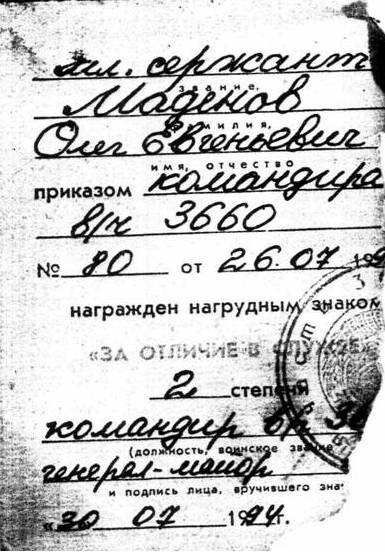 мл. сержант
звание,
Маденов
фамилия,
Олег Евгеньевич
имя, отчество
приказом командира
в/ч 3660
№ 80 от 26.07 199
награжден нагрудным знаком
«ЗА ОТЛИЧИЕ В СЛУЖБЕ»
2 степени
командир в/ч 36
(должность, воинское звание
генерал-майор
и подпись лица, вручившего зна
«30 07 1994г.